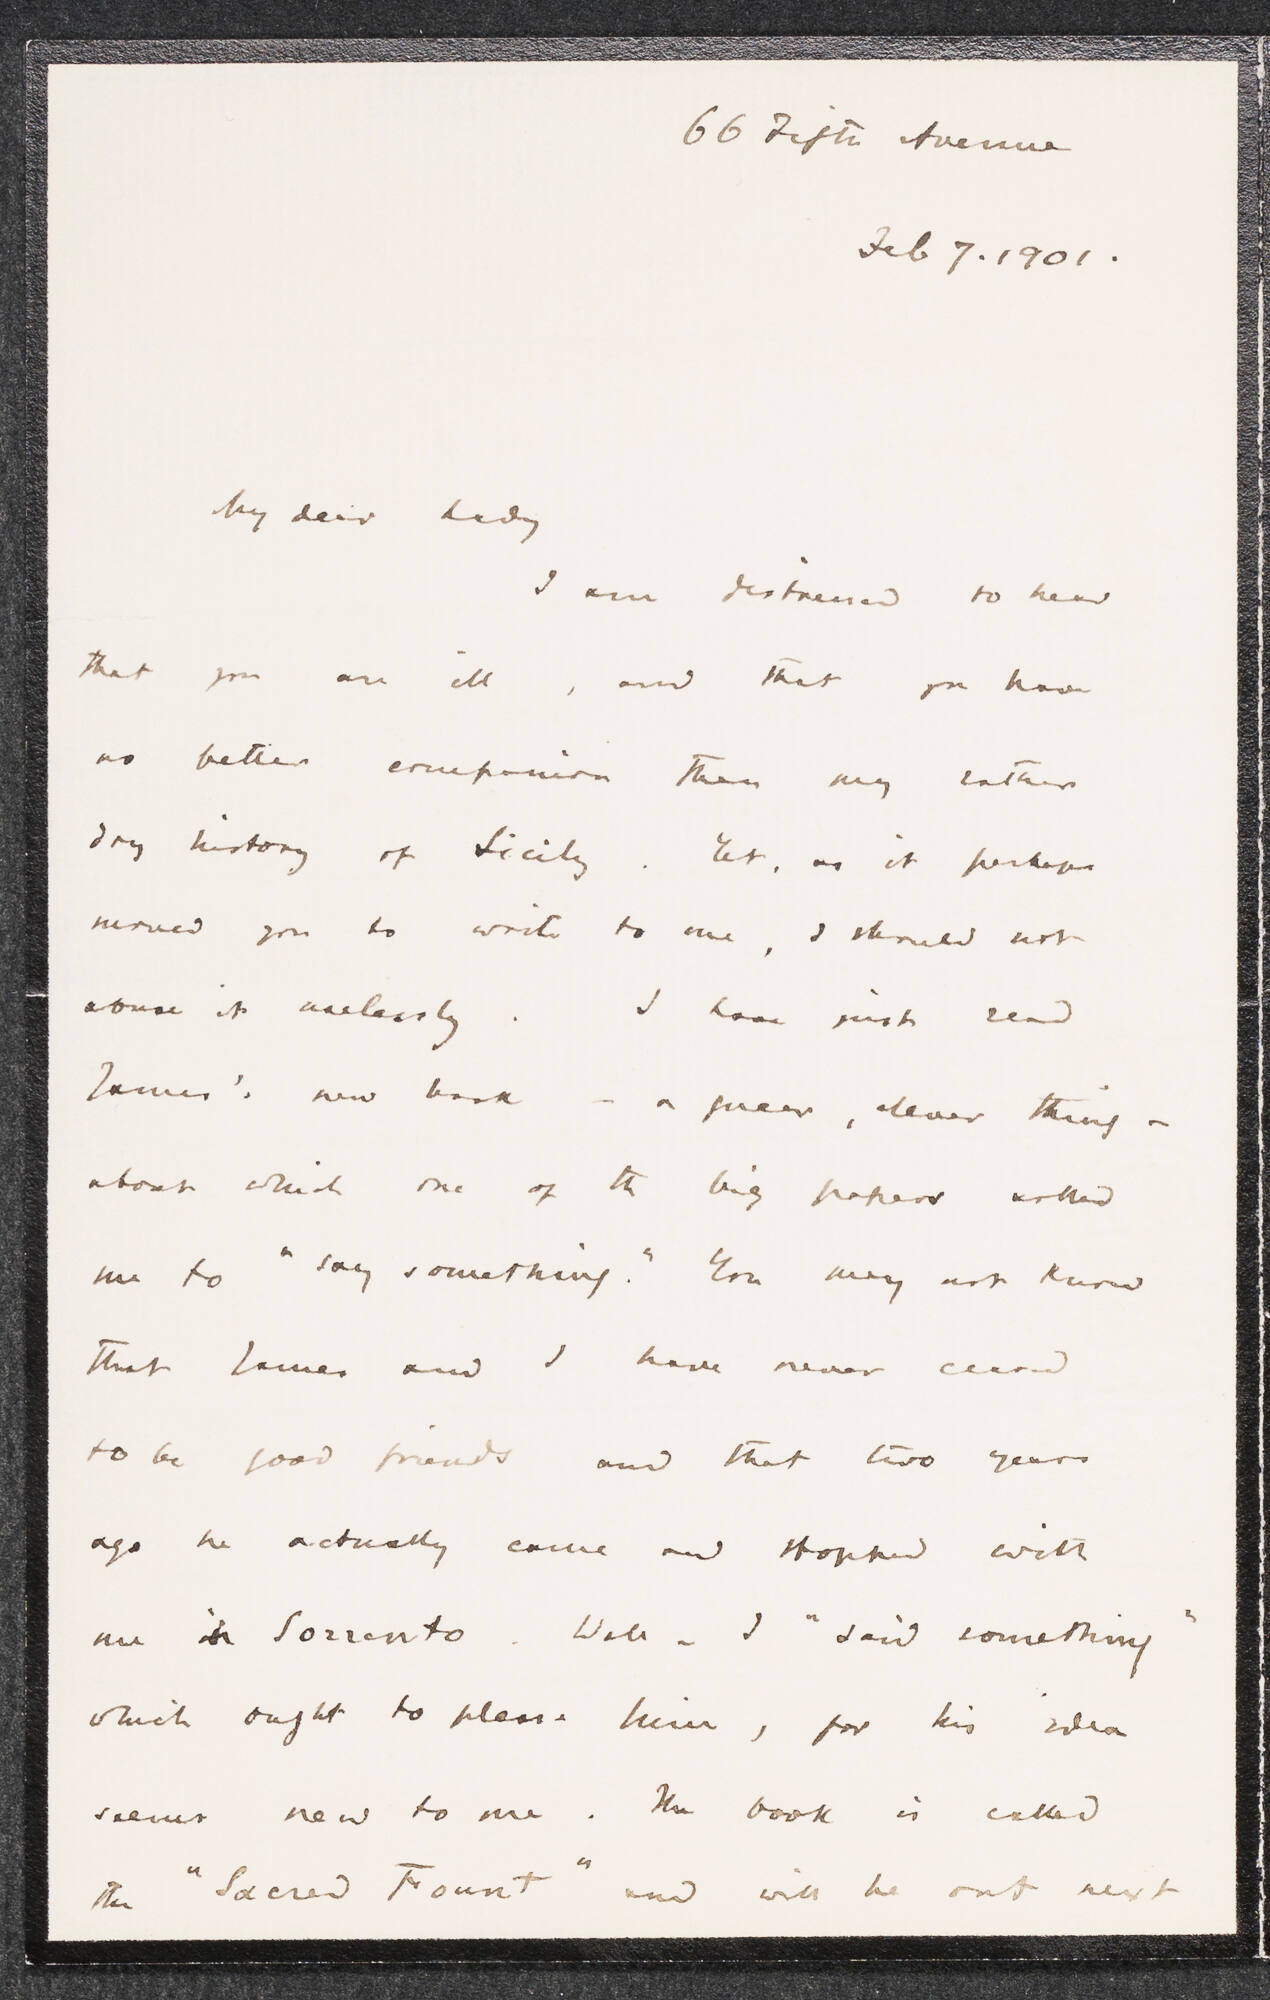 66 Fifth Avenue
Feb 7. 1901.
My dear Lady
I am distressed to hear
that you are ill, and that you have
no better companion than my rather
dry history of Sicily. Yet, as it perhaps
moved you to write to me, I should not
abuse it uselessly. I have just read
James's new book – a queer, clever thing –
about which one of the big papers asked
me to "say something." You may not know
that James and I have never ceased
to be good friends and that two years
ago he actually came and stopped with
me in Sorrento. Well – I "said something"
which ought to please him, for his idea
seems new to me. The book is called
the "Sacred Fount" and will be out next